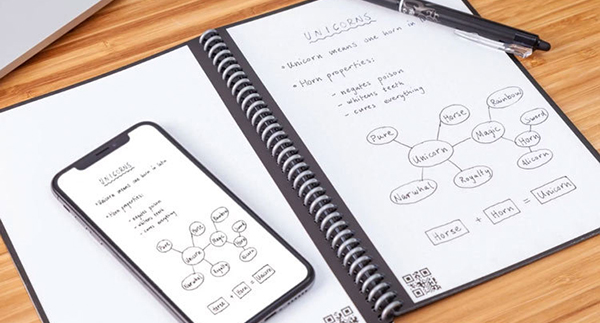 UNICORNS
• Unicorn means one horn in
• Horn properties:
- negates poison
- whitens teeth
- cures everything
Rainbow
Horse
Sword
Pure
Magic
Horn
Unicorn
Alicorn
Royalty
Narwhal
Horse + Horn = Unicorn
UNICORNS
• Unicorn means one horn in latin
• Horn properties:
- negates poison
- whitens teeth
- cures everything
Rainbow
Horse
Pure
Magic
Unicorn
Royalty
Narwhal
Horse + Horn = Unicorn